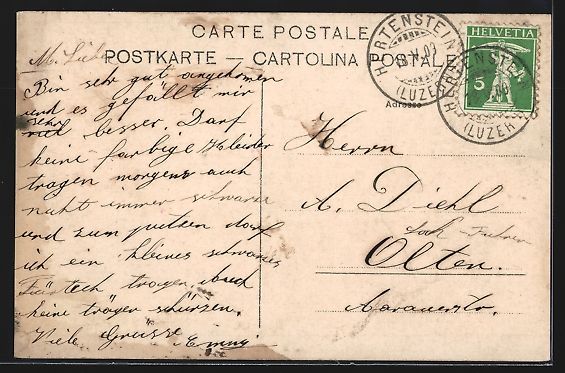 CARTE POSTALE
POSTKARTE — CARTOLINA POSTALE
HERTENSTEIN
(LUZERN)
HELVETIA
5
HERTENSTEIN
(LUZERN)
Adresse
M. Lieb
Bin sehr gut angekomen
und es gefällt mir
viel besser. Darf
keine farbige Kleider
tragen morgens auch
nicht immer schwarze
und zum putzen darf
ich ein kleines schwarzes
tragen. Auch
keine träger schürzen.
Viele Grüsse Emmy
Herrn
A. Diehl
Olten.
Aarauerstr.